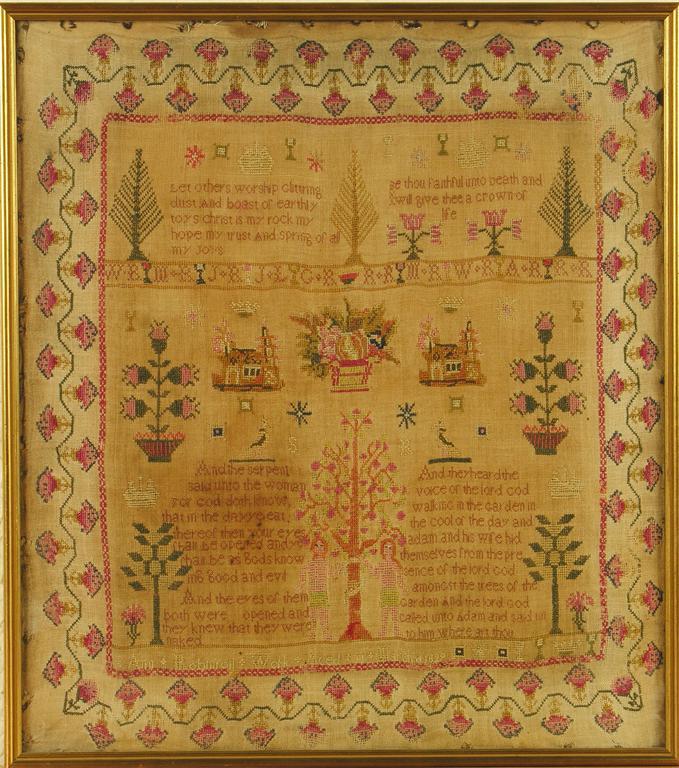 Let others worship glittring
dust And boast of earthly
toys christ is my rock my
hope my trust And spring of all
my Joys
Be thou Faithful unto Death and
I will give thee a crown of
life
W R M R J R J L G R R R M R W R A R R R
And the serpent
said unto the woman
For God doth know
that in the day ye eat
thereof then your eyes
shall be opened and ye
shall be as Gods know
ing Good and evil
And the eyes of them
both were opened and
they knew that they were
naked
And they heard the
voice of the lord God
walking in the Garden in
the cool of the day and
Adam and his wife hid
themselves from the pre
sence of the lord God
amongst the trees of the
Garden And the lord God
called unto Adam and said un
to him where art thou
Ann Robinson Work